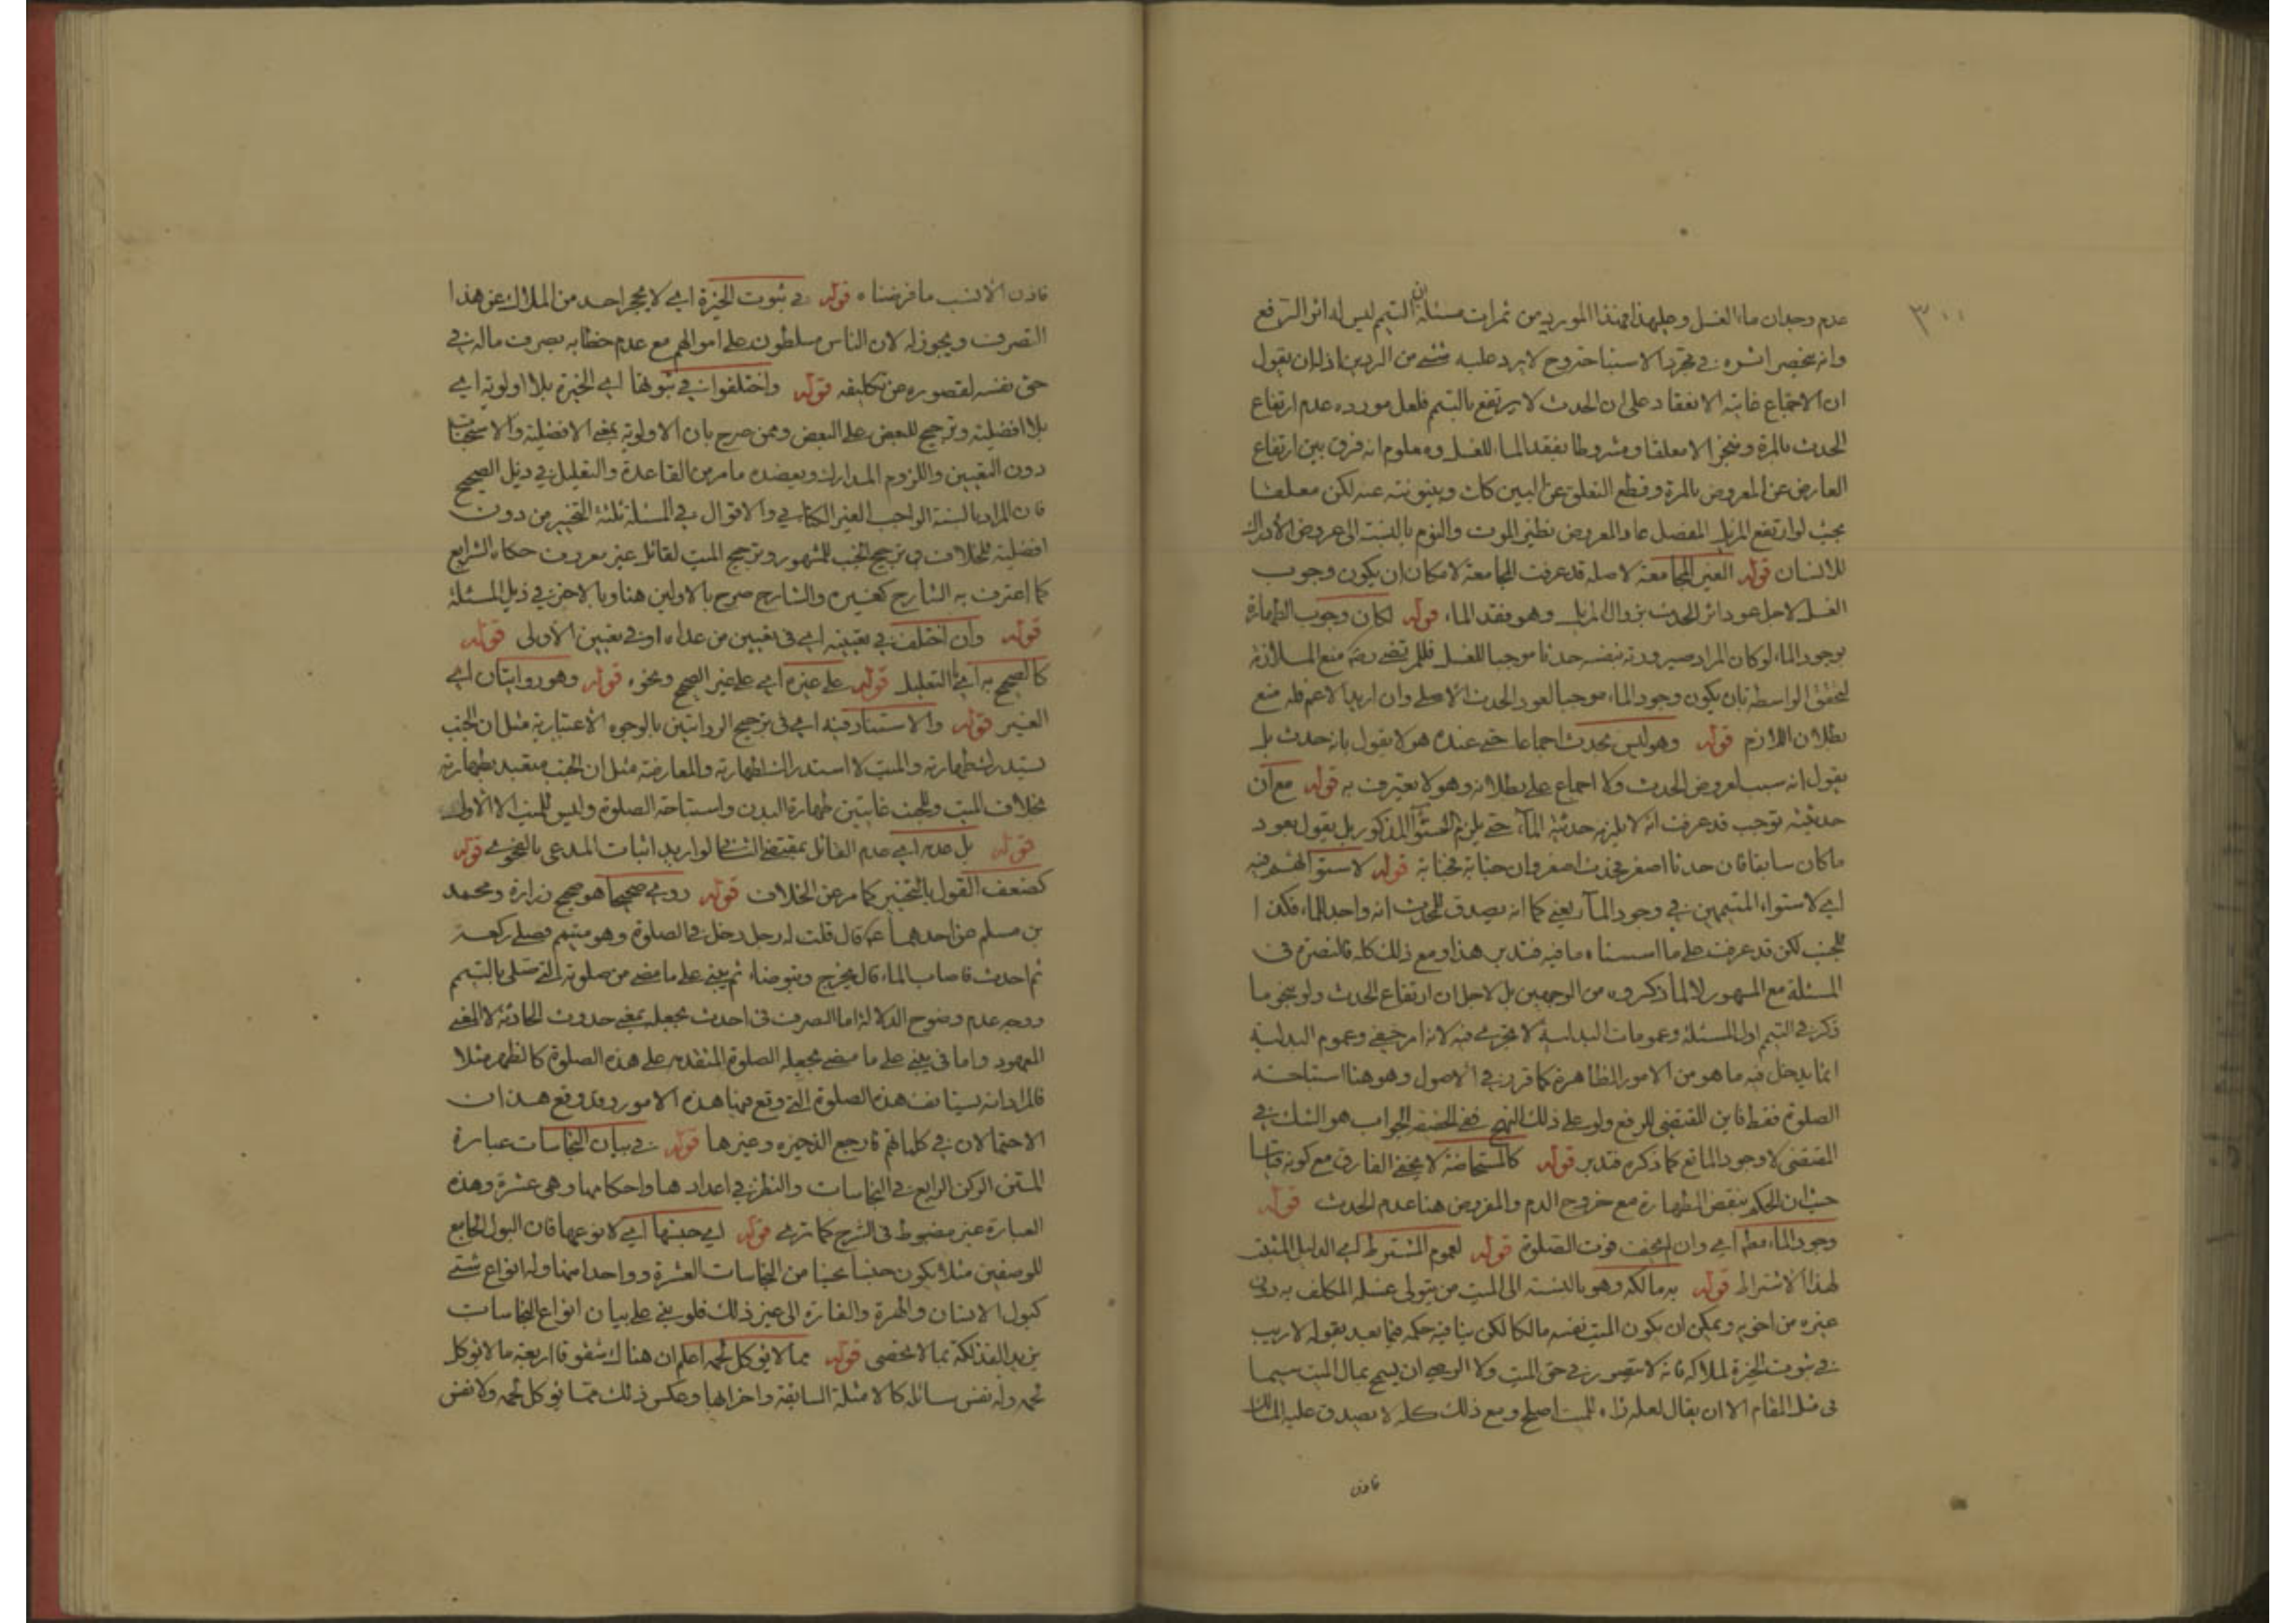 ٣٠٠
عدم وجدان ماء الغسل وعليهذا فهذا المورد من ثمرات مسئلة ان التيمم ليس له اثر الرفع
وانه ينحصر اثره في مجرد الاستباحة وح لا يرد عليه شئ من الردين اذ له ان يقول
ان الاجماع غايته الانعقاد على ان الحدث لا يرتفع بالتيمم فلعل مورده عدم ارتفاع
الحدث بالمرة ومنجزا لا معلقا ومشروطا بفقد الماء للغسل ومعلوم انه فرق بين ارتفاع
العارض عن المعروض بالمرة وقطع التعلق عن البين كان وبينونته عنه لكن معلقا
بحيث لو ارتفع المزيل المفصل عاد المعروض نظير الموت والنوم بالنسبة الى عروض الادراك
للانسان قوله الغير المجامعة لاصله قد عرفت المجامعة لامكان ان يكون وجوب
الغسل لاجل عود اثر الحدث بزوال المزيل وهو فقد الماء قوله لكان وجوب الطهارة
بوجود الماء لو كان المراد صيرورته بنفسه حدثا موجبا للغسل فللمرتضى ره منع الملازمة
لتحقق الواسطة بان يكون وجود الماء موجبا لعود الحدث الاصلي وان اريد الاعم فله منع
بطلان اللازم قوله وهو ليس بحدث اجماعا حتى عنده هو لا يقول بانه حدث بل
يقول انه سبب لعروض الحدث ولا اجماع على بطلانه وهو لا يعترف به قوله مع ان
حدثيته توجب قد عرفت انه لا يلزمه حدثية الماء حتى يلزم التسوآء المذكور بل يقول بعود
ما كان سابقا فان حدثا اصغر فحدث اصغر وان جنابة فجنابة قوله لاستوائهم فيه
اي لاستواء المتيممين في وجود الماء يعني كما انه يصدق للمحدث انه واجد للماء فكذا
للجنب لكن قد عرفت على ما اسسناه ما فيه فتدبر هذا ومع ذلك كله فالنصرة في
المسئلة مع المشهور لا لما ذكروه من الوجهين بل لاجل ان ارتفاع الحدث ولو بنحو ما
ذكر في التيمم اول المسئلة وعمومات البدلية لا تجري فيه لانه امر خفي وعموم البدلية
انما يدخل فيه ما هو من الامور الظاهرة كما قرر في الاصول وهو هنا استباحة
الصلوة فقط فاين المقتضي للرفع ولو على ذلك النهج ففي الحقيقة الجواب هو الشك في
المقتضى لا وجود المانع كما ذكره فتدبر قوله كالمستحاضة لا يخفى الفارق مع كونه قياسا
حيث ان الحكم بنقض الطهارة مع خروج الدم والمفروض هنا عدم الحدث قوله
وجود الماء مطلقا اي وان لم يخف فوت الصلوة قوله لعموم المشترط اي الدليل المثبت
لهذا الاشتراط قوله به مالكه وهو بالنسبة الى الميت من يتولى غسله المكلف به دون
غيره من اخويه ويمكن ان يكون الميت نفسه مالكا لكن ينافيه حكمه فيما بعد بقوله لا ريب
في ثبوت الخيرة لملاكه فانه لا يتصور في حق الميت ولا الوصي ان يسمح بمال الميت سيما
في مثل المقام الا ان يقال لعله رآه للميت اصلح ومع ذلك كله لا يصدق عليه المالك
فاذن
فاذن الانسب ما فرضناه قوله في ثبوت الخيرة اي لا يحجر احد من الملاك عن هذا
التصرف ويجوز له لان الناس مسلطون على اموالهم مع عدم خطابه بصرف ماله في
حق نفسه لقصوره عن تكليفه قوله واختلفوا في ثبوتها اي الخيرة بلا اولوية اي
بلا افضلية وترجيح للبعض على البعض وممن صرح بان الاولوية بمعنى الافضلية والاستحباب
دون التعيين واللزوم المدارك ويعضده ما مر من القاعدة والتعليل في ذيل الصحيح
فان المراد بالسنة الواجب الغير الكتابي والاقوال في المسئلة ثلثة التخيير من دون
افضلية للخلاف وترجيح الجنب للمشهور وترجيح الميت لقائل غير معروف حكاه الشرايع
كما اعترف به الشارح كغيره والشارح صرح بالاولين هنا وبالاخر في ذيل المسئلة
قوله وان اختلف في تعيينه اي في تعيين من عداه او في تعيين الاولى قوله
كالصحيح به اي بالتعليل قوله على غيره اي على غير الصحيح ونحوه قوله وهو روايتان اي
الغير قوله والاستناد فيه اي في ترجيح الروايتين بالوجوه الاعتبارية مثل ان الجنب
يستدرك طهارته والميت لا استدراك لطهارته والمعارضة مثل ان الجنب متعبد بطهارته
بخلاف الميت وللجنب غايتين طهارة البدن واستباحة الصلوة وليس للميت الا الاولى
قوله بل عدمه اي عدم القائل بمقتضى الثاني لو اريد اثبات المدعى بالفحوى قوله
كضعف القول بالتخيير كما مر عن الخلاف قوله روى صحيحا هو صحيح زرارة ومحمد
بن مسلم عن احدهما ع قال قلت له رجل دخل في الصلوة وهو متيمم فصلى ركعة
ثم احدث فاصاب الماء قال يخرج ويتوضاء ثم يبني على ما مضى من صلوته التي صلى بالتيمم
ووجه عدم وضوح الدلالة اما التصرف في احدث بجعله بمعنى حدوث الحادثة لا المعنى
المعهود واما في يبني على ما مضى بجعله الصلوة المتقدمة على هذه الصلوة كالظهر مثلا
فالمراد انه يستانف هذه الصلوة التي وقع فيها هذه الامور وقد وقع هذان
الاحتمالان في كلماتهم فارجع الذخيرة وغيرها قوله في بيان النجاسات عبارة
المتن الركن الرابع في النجاسات والنظر في اعدادها واحكامها وهي عشرة وهذه
العبارة غير مضبوط في الشرح كما ترى قوله اي جنسها اي لا نوعها فان البول الجامع
للوصفين مثلا يكون جنسا نجسا من النجاسات العشرة وواحدا منها وله انواع شتى
كبول الانسان والهرة والفارة الى غير ذلك فلو بنى على بيان انواع النجاسات
يزيد الفذلكة بما لا يحصى قوله مما لا يؤكل لحمه اعلم ان هناك شقوقا اربعة ما لا يؤكل
لحمه وله نفس سائلة كالامثلة السابقة واضرابها وعكس ذلك مما يؤكل لحمه ولا نفس